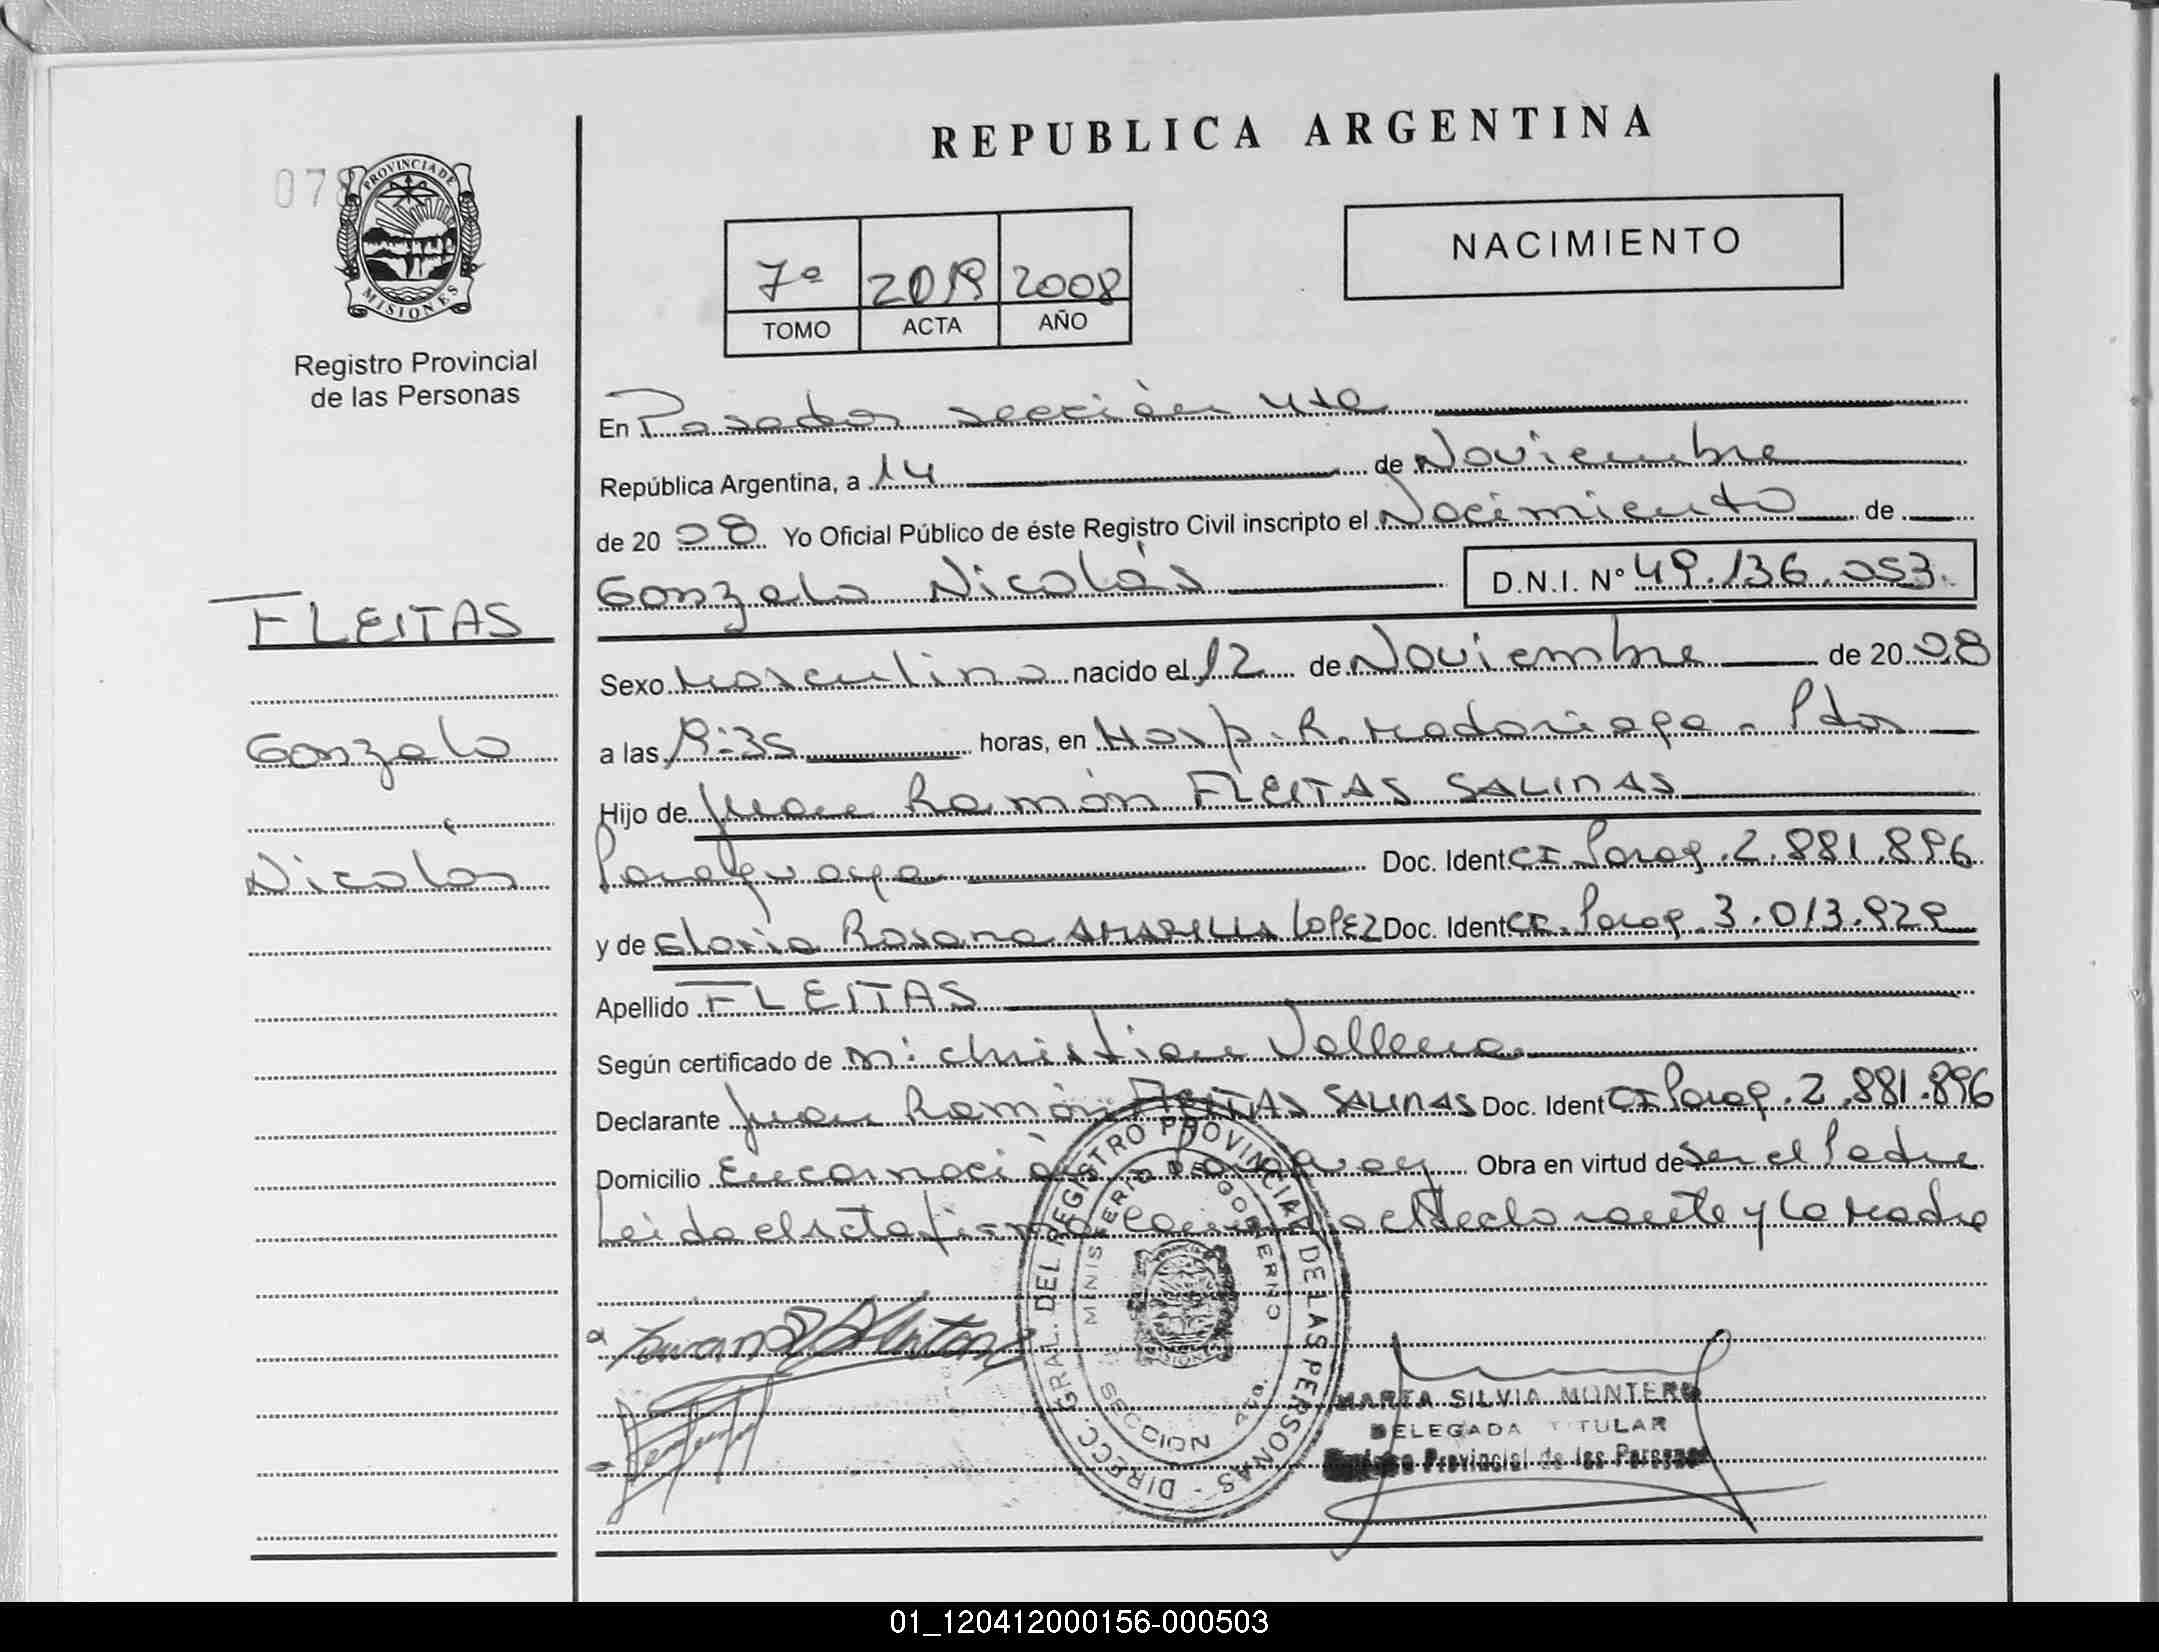 REPUBLICA ARGENTINA
078
PROVINCIA DE
MISIONES
Registro Provincial
de las Personas
NACIMIENTO
7º 2019 2008
TOMO ACTA AÑO
En Posadas sección 4ta
República Argentina, a 14 de Noviembre
de 2008 Yo Oficial Público de éste Registro Civil inscripto el Nacimiento de
Gonzalo Nicolás D.N.I. Nº 49.136.053.
FLEITAS
Gonzalo
Nicolás
Sexo Masculino nacido el 12 de Noviembre de 2008
a las 19:35 horas, en Hosp. R. Madariaga - Pdas
Hijo de Juan Ramón FLEITAS SALINAS
Paraguaya Doc. Ident CI Parag. 2.881.896
y de Gloria Rosana AMARILLA LOPEZ Doc. Ident CI. Parag. 3.013.929
Apellido FLEITAS
Según certificado de M: Christian
Declarante Juan Ramón FLEITAS SALINAS Doc. Ident CI Parag. 2.881.896
Domicilio Encarnación Paraguay Obra en virtud de ser el Padre
Leida el acta firma conmigo el declarante y la Madre
DIRECC. GRAL. DEL REGISTRO PROVINCIAL DE LAS PERSONAS -
MINISTERIO DE GOBIERNO
SECCION
MARTA SILVIA MONTERO
DELEGADA TITULAR
Provincial de las Personas
01_120412000156-000503